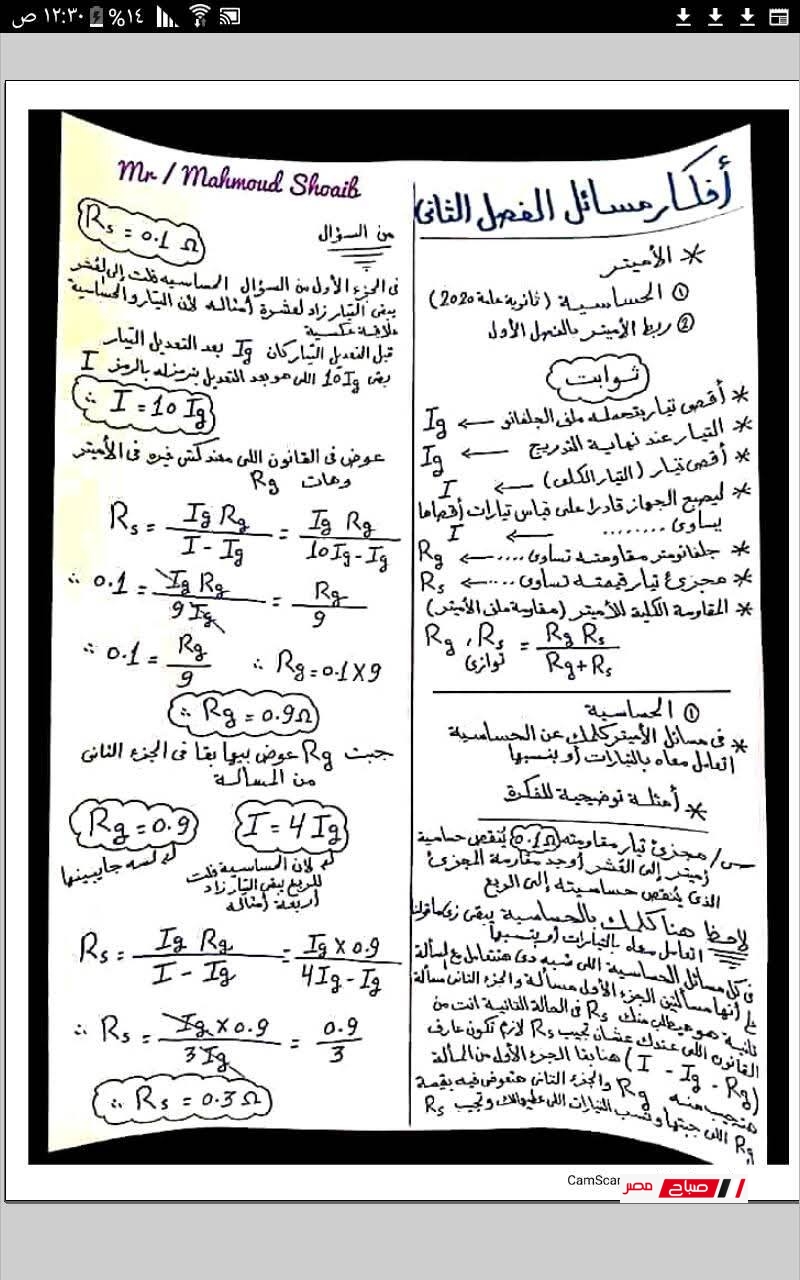 ١٢:٣٠ ص
%١٤
أفكار مسائل الفصل الثانى
* الأميتر
① الحساسية (ثانوية عامة 2020)
② ربط الأميتر بالفصل الأول
ثوابت
* أقصى تيار يتحمله ملف الجلفانو ← Ig
* التيار عند نهاية التدريج ← Ig
* أقصى تيار (التيار الكلى) ← I
* ليصبح الجهاز قادرا على قياس تيارات أقصاها
يساوى ........ ← I
* جلفانومتر مقاومته تساوى .... ← Rg
* مجزئ تيار قيمته تساوى .... ← Rs
* المقاومة الكلية للأميتر (مقاومة ملف الأميتر)
Rg , Rs توازى = Rg Rs / Rg + Rs
① الحساسية
* فى مسائل الأميتر كلمك عن الحساسية
اتعامل معاه بالتيارات أو بنسبها
* أمثلة توضيحية للفكرة
س/ مجزئ تيار مقاومته 0.1Ω يُنقص حساسية
أميتر إلى العشر أوجد مقاومة المجزئ
الذى يُنقص حساسيته إلى الربع
لاحظ هنا كلمك بالحساسية يبقى زى ما قولنا
اتعامل معاه بالتيارات أو بنسبها
فى كل مسائل الحساسية اللى شبه دى هنتعامل مع المسألة
على أنها مسألتين الجزء الأول مسألة والجزء الثانى مسألة
تانية هو عيطلب منك Rs فى الحالة التانية انت من
القانون اللى عندك عشان تجيب Rs لازم تكون عارف
(I - Ig - Rg) هنا بقا الجزء الأول من المسألة
هنجيب منه Rg والجزء الثانى هنعوض فيه بقيمة
Rg اللى جبتها ونسب التيارات اللى عطيهالك وتجيب Rs
Mr / Mahmoud Shoaib
من السؤال
Rs = 0.1 Ω
فى الجزء الأول من السؤال الحساسيه قلت إلى العُشر
يبقى التيار زاد لعشرة أمثاله لأن التيار والحساسية
علاقة عكسية
قبل التعديل التيار كان Ig بعد التعديل التيار
بقى 10Ig اللى هو بعد التعديل بنرمزله بالرمز I
∴ I = 10 Ig
عوض فى القانون اللى معندكش غيره فى الأميتر
وهات Rg
Rs = Ig Rg / I - Ig = Ig Rg / 10Ig - Ig
∴ 0.1 = Ig Rg / 9 Ig = Rg / 9
∴ 0.1 = Rg / 9 ∴ Rg = 0.1 X 9
∴ Rg = 0.9Ω
جبت Rg عوض بيها بقا فى الجزء الثانى
من المسألة
Rg = 0.9 I = 4 Ig
لسه جايبينها
لأن الحساسية قلت
للربع يبقى التيار زاد
أربعة أمثاله
Rs = Ig Rg / I - Ig = Ig x 0.9 / 4Ig - Ig
∴ Rs = Ig x 0.9 / 3 Ig = 0.9 / 3
∴ Rs = 0.3 Ω
CamScan
صباح مصر